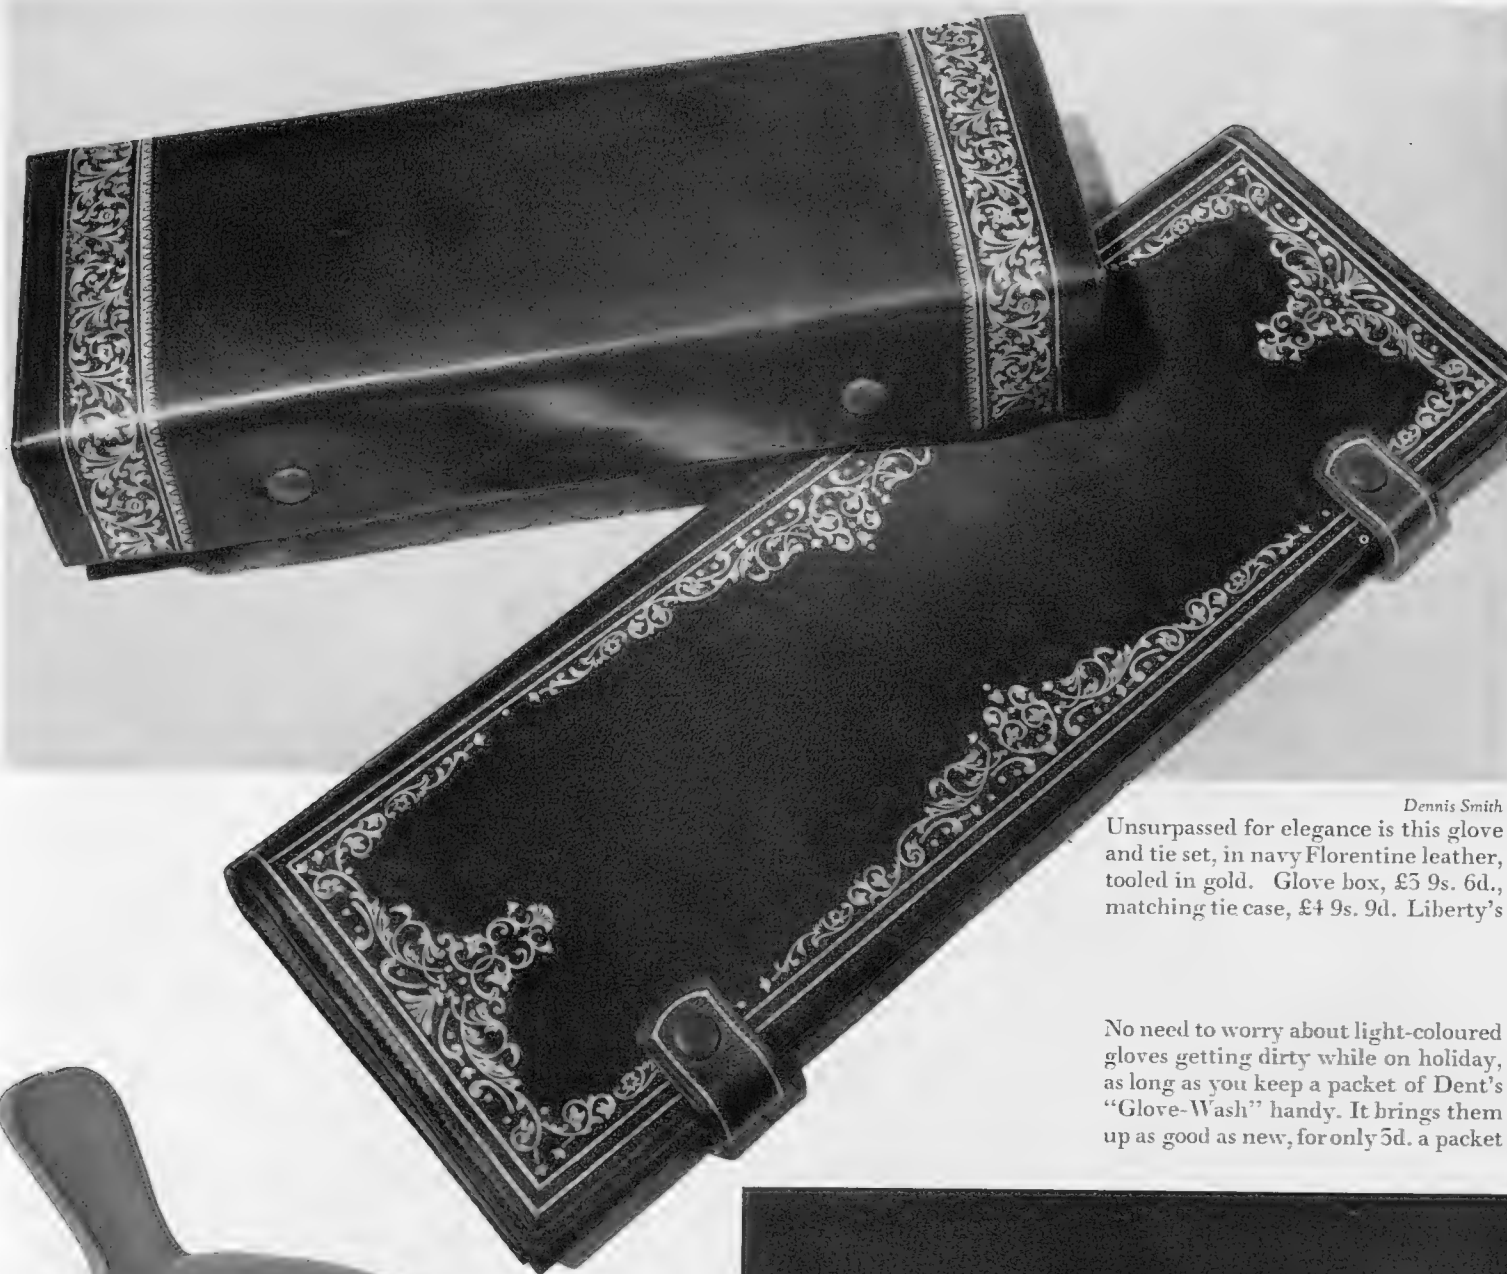 Dennis Smith
Unsurpassed for elegance is this glove
and tie set, in navy Florentine leather,
tooled in gold. Glove box, £5 9s. 6d.,
matching tie case, £4 9s. 9d. Liberty's
No need to worry about light-coloured
gloves getting dirty while on holiday,
as long as you keep a packet of Dent's
“Glove-Wash” handy. It brings them
up as good as new, for only 5d. a packet